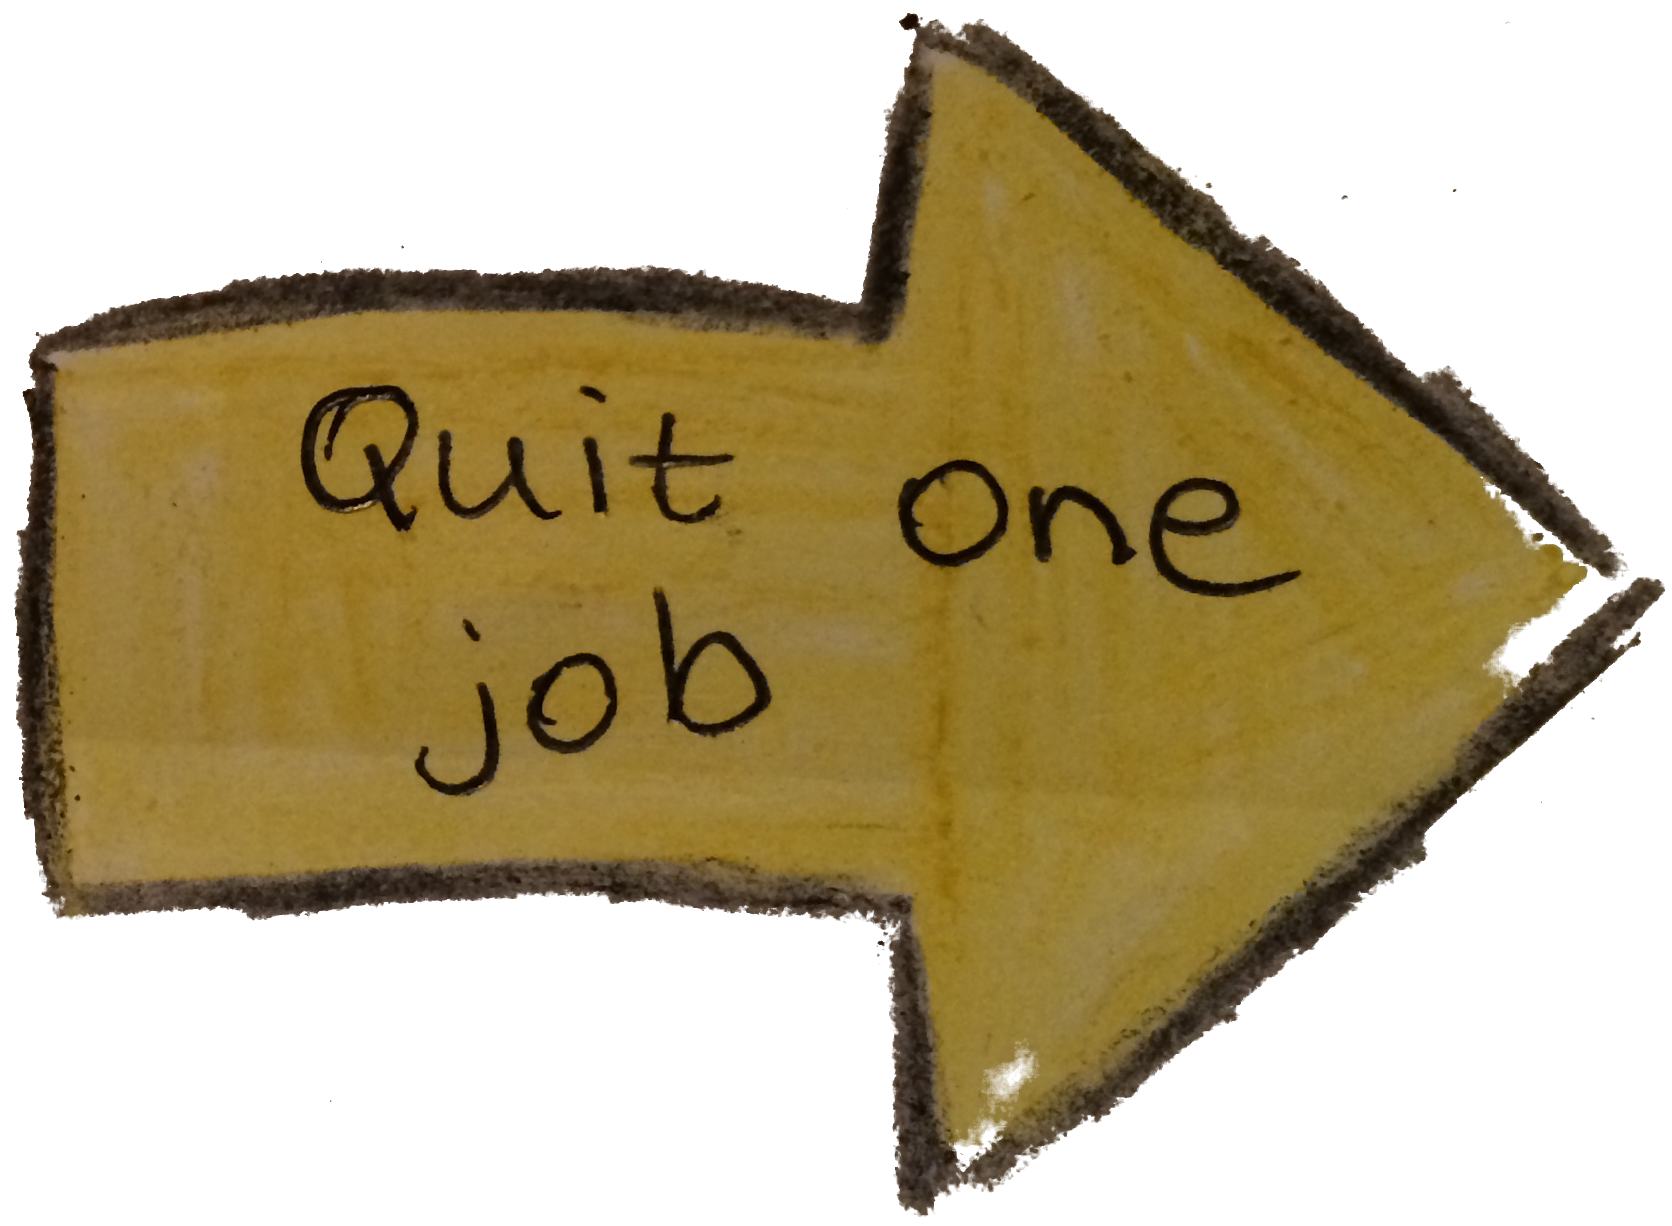 Quit one
job